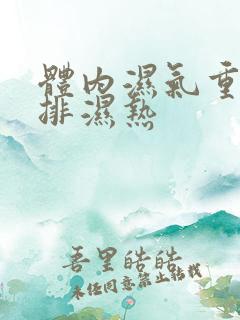 體內濕氣重
排濕熱
吾里皓皓
未经同意禁止转载